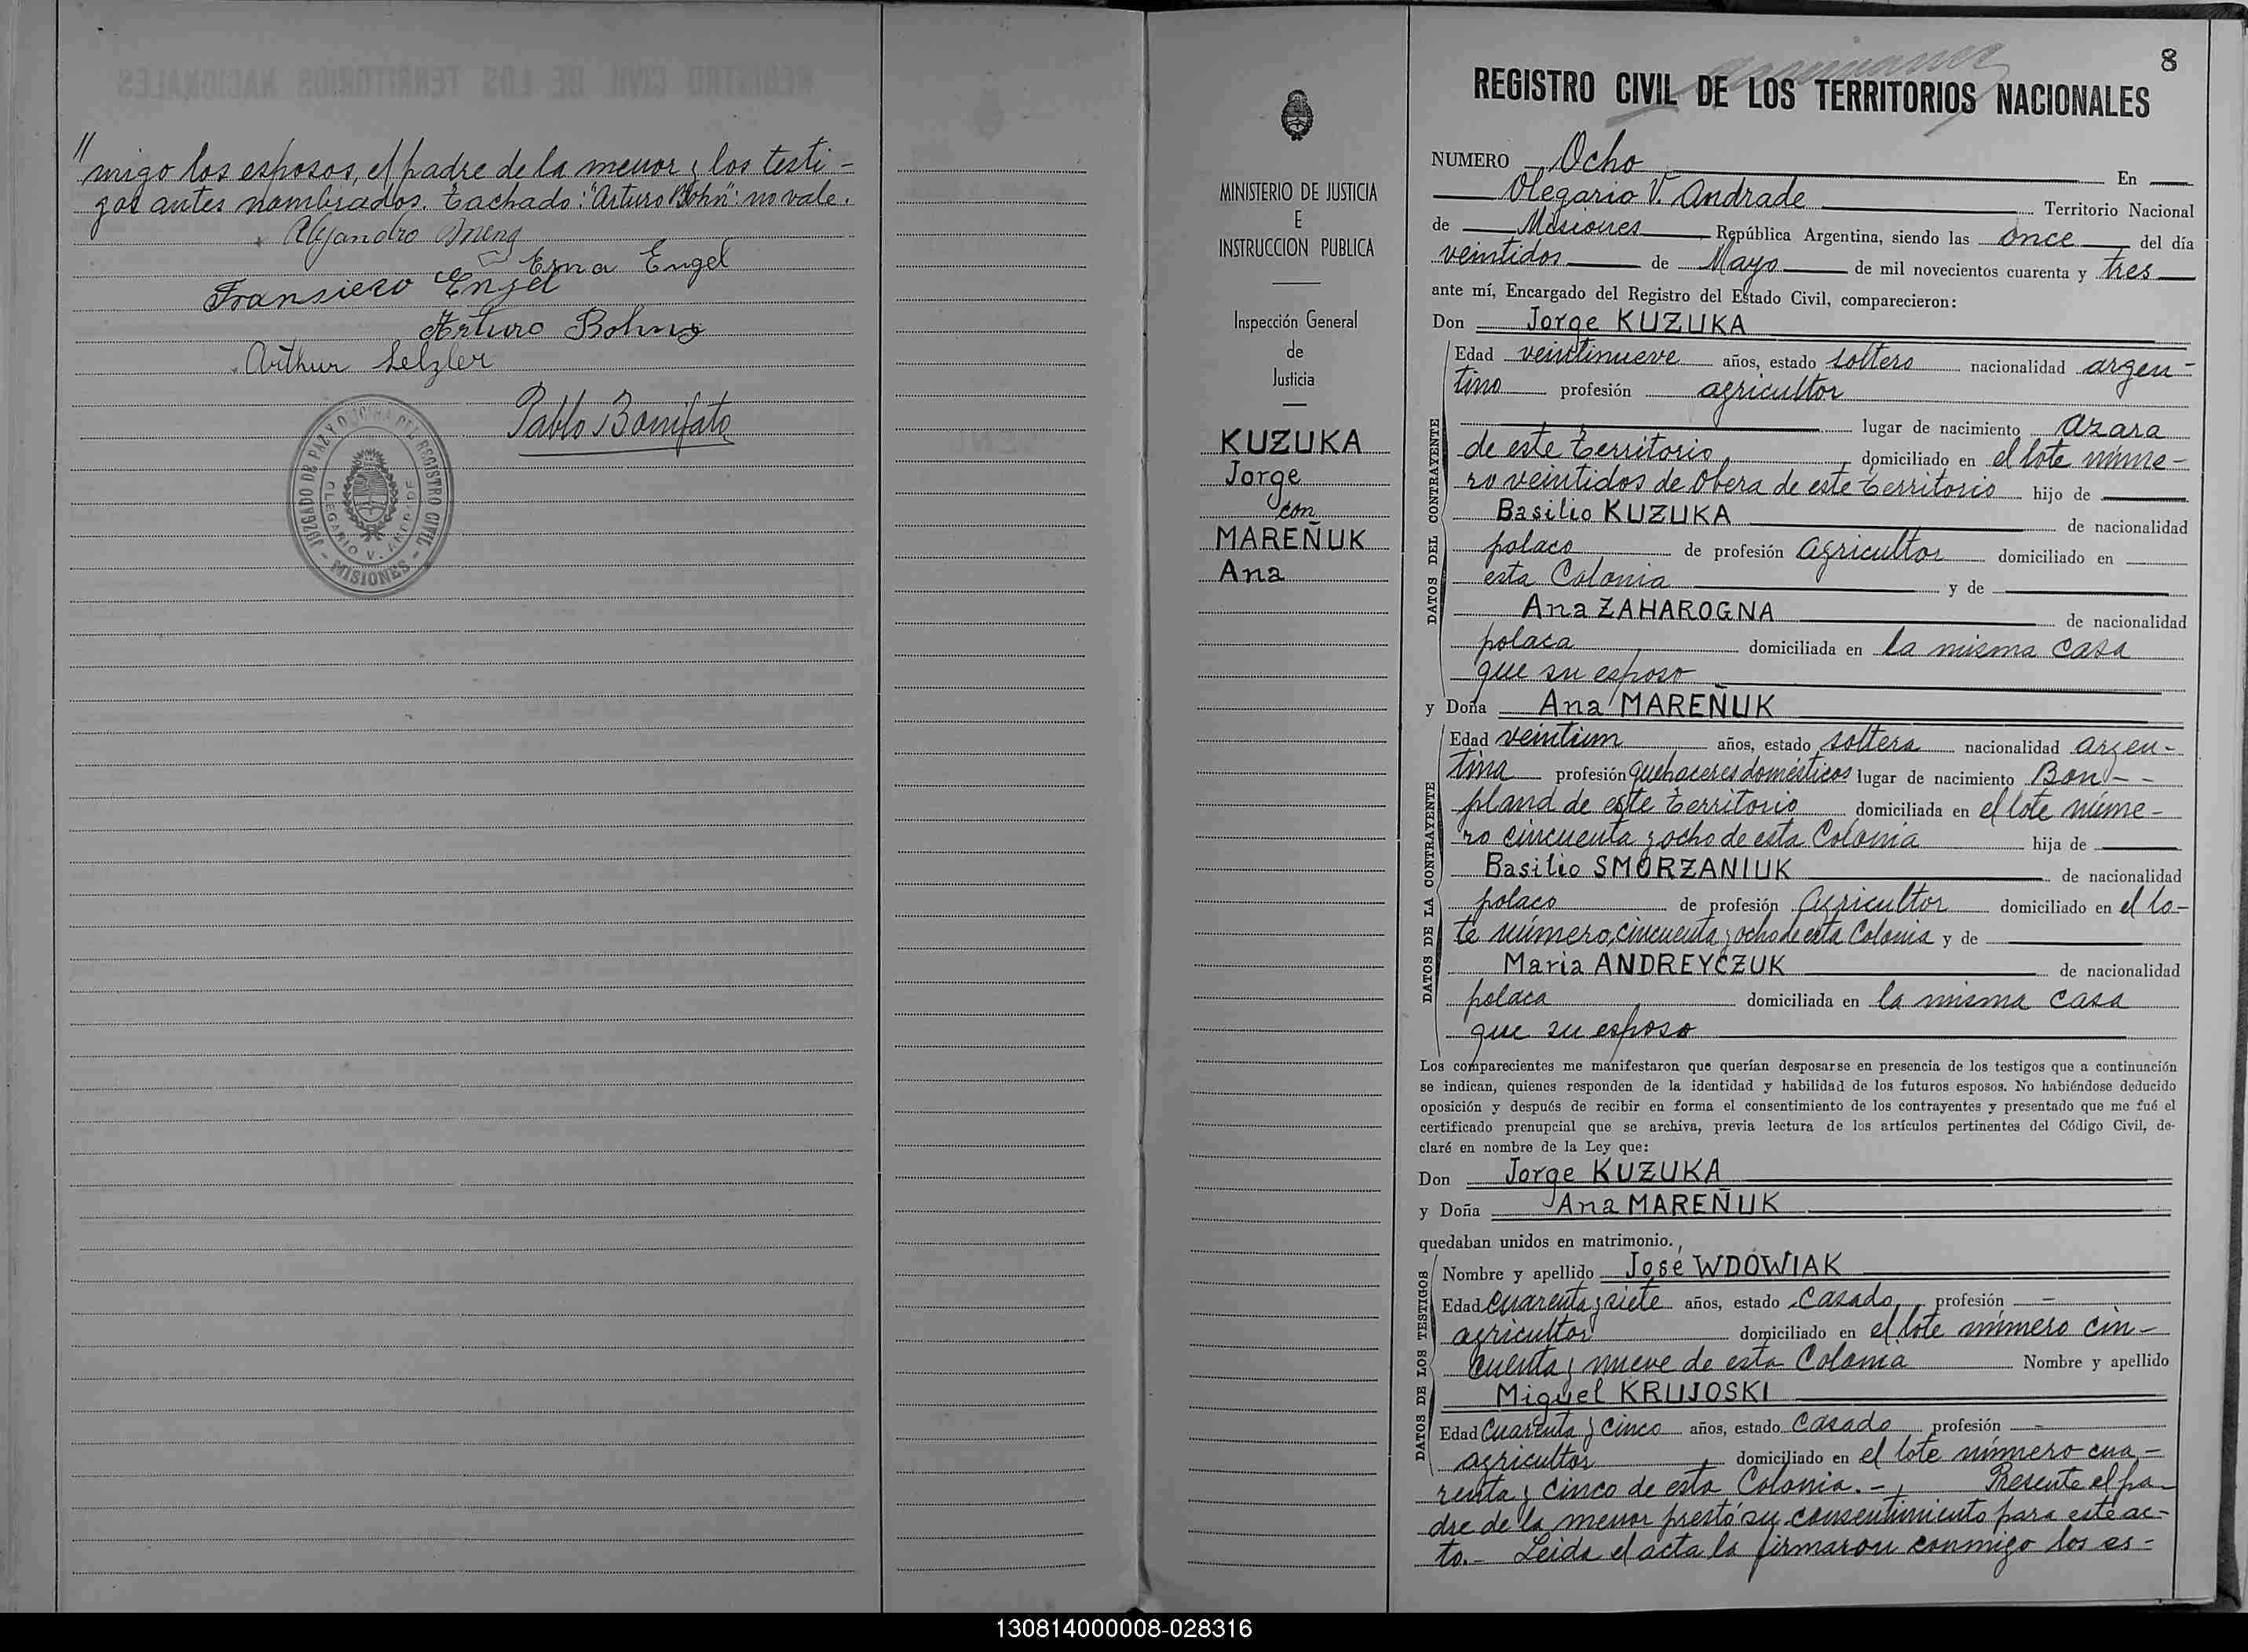 " migo los esposos, el padre de la menor y los testi-
gos antes nombrados. Tachado: "Arturo Bohn": no vale.
Alejandro
Erna Engel
Fransisco Engel
Arturo Bohn
Arthur Selzler
Pablo Bonifato
JUZGADO DE PAZ Y OFICINA DEL REGISTRO CIVIL
OLEGARIO V. ANDRADE
- MISIONES -
MINISTERIO DE JUSTICIA
E
INSTRUCCION PUBLICA
Inspección General
de
Justicia
KUZUKA
Jorge
con
MAREÑUK
Ana
8
REGISTRO CIVIL DE LOS TERRITORIOS NACIONALES
NUMERO Ocho En
Olegario V. Andrade Territorio Nacional
de Misiones República Argentina, siendo las once del día
veintidos de Mayo de mil novecientos cuarenta y tres
ante mí, Encargado del Registro del Estado Civil, comparecieron:
Don Jorge KUZUKA
DATOS DEL CONTRAYENTE
Edad veintinueve años, estado soltero nacionalidad argen-
tino profesión agricultor
lugar de nacimiento Azara
de este territorio domiciliado en el lote núme-
ro veintidos de Obera de este territorio hijo de
Basilio KUZUKA de nacionalidad
polaco de profesión agricultor domiciliado en
esta Colonia y de
Ana ZAHAROGNA de nacionalidad
polaca domiciliada en la misma casa
que su esposo
y Doña Ana MAREÑUK
DATOS DE LA CONTRAYENTE
Edad veintiun años, estado soltera nacionalidad argen-
tina profesión quehaceres domésticos lugar de nacimiento Bon--
pland de este territorio domiciliada en el lote núme-
ro cincuenta y ocho de esta Colonia hija de
Basilio SMORZANIUK de nacionalidad
polaco de profesión Agricultor domiciliado en el lo-
te número cincuenta y ocho de esta Colonia y de
Maria ANDREYCZUK de nacionalidad
polaca domiciliada en la misma casa
que su esposo
Los comparecientes me manifestaron que querían desposarse en presencia de los testigos que a continuación
se indican, quienes responden de la identidad y habilidad de los futuros esposos. No habiéndose deducido
oposición y después de recibir en forma el consentimiento de los contrayentes y presentado que me fué el
certificado prenupcial que se archiva, previa lectura de los artículos pertinentes del Código Civil, de-
claré en nombre de la Ley que:
Don Jorge KUZUKA
y Doña Ana MAREÑUK
quedaban unidos en matrimonio.
DATOS DE LOS TESTIGOS
Nombre y apellido José WDOWIAK
Edad cuarenta y siete años, estado casado profesión -
agricultor domiciliado en el lote número cin-
cuenta y nueve de esta Colonia Nombre y apellido
Miguel KRUJOSKI
Edad cuarenta y cinco años, estado casado profesión -
agricultor domiciliado en el lote número cua-
renta y cinco de esta Colonia.- Presente el pa-
dre de la menor prestó su consentimiento para este ac-
to.- Leida el acta la firmaron conmigo los es-
130814000008-028316